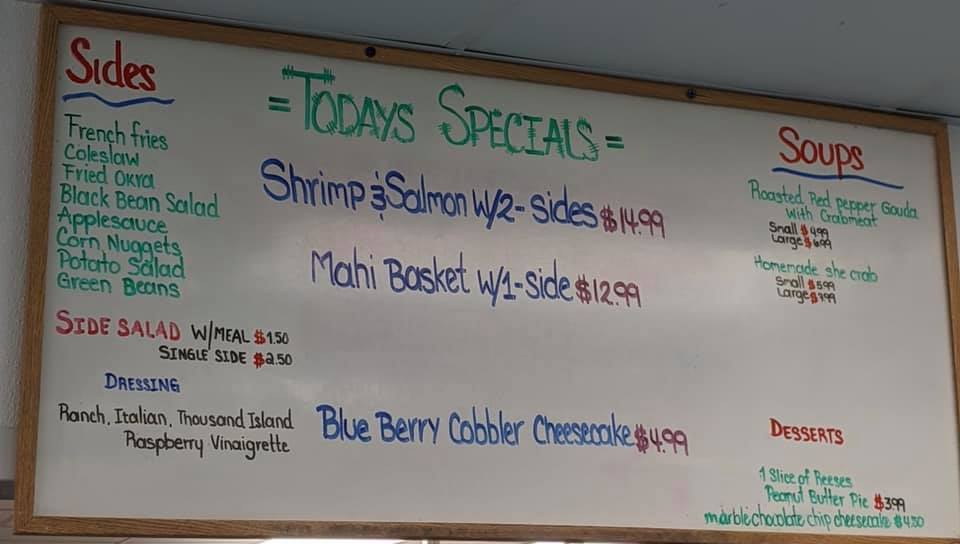 Sides
French fries
Coleslaw
Fried Okra
Black Bean Salad
Applesauce
Corn Nuggets
Potato Salad
Green Beans
SIDE SALAD W/MEAL $1.50
SINGLE SIDE $2.50
DRESSING
Ranch, Italian, Thousand Island
Raspberry Vinaigrette
= TODAYS SPECIALS =
Shrimp & Salmon W/2- sides $14.99
Mahi Basket W/1-side $12.99
Blue Berry Cobbler Cheesecake $4.99
Soups
Roasted Red pepper Gouda
With Crabmeat
Small $4.99
Large $6.99
Homemade she crab
Small $5.99
Large $7.99
DESSERTS
1 Slice of Reeses
Peanut Butter Pie $3.99
marble chocolate chip cheesecake $4.50